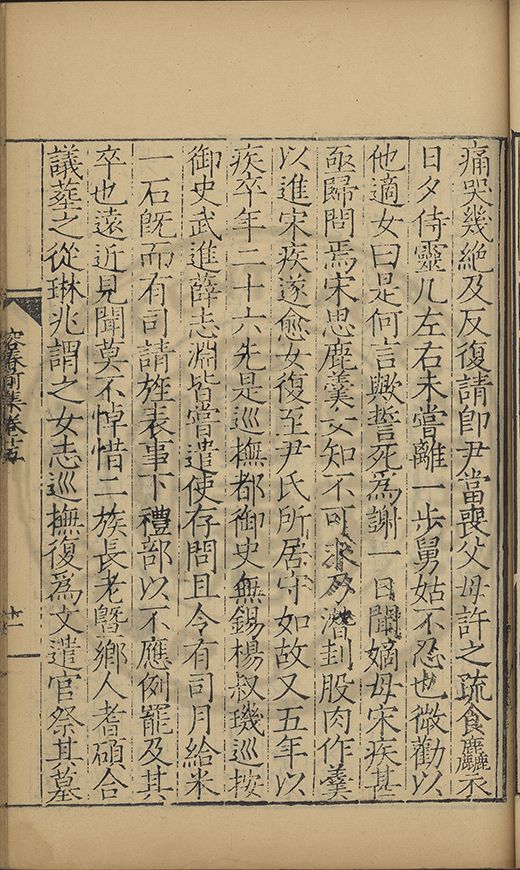 痛哭幾絶及反復請即尹當喪父母許之疏食麤衣
日夕侍靈几左右未嘗離一步舅姑不忍也微勸以
他適女曰是何言歟誓死爲謝一日聞嫡母宋疾甚
亟歸問焉宋思鹿羹女知不可求乃潛刲股肉作羹
以進宋疾遂愈女復至尹氏所居守如故又五年以
疾卒年二十六先是巡撫都御史無錫楊叔璣巡按
御史武進薛志淵皆嘗遣使存問且令有司月給米
一石旣而有司請旌表事下禮部以不應例罷及其
卒也遠近見聞莫不悼惜二族長老曁鄉人耆碩合
議葬之從琳兆謂之女志巡撫復爲文遣官祭其墓
容春前集卷十五
十一